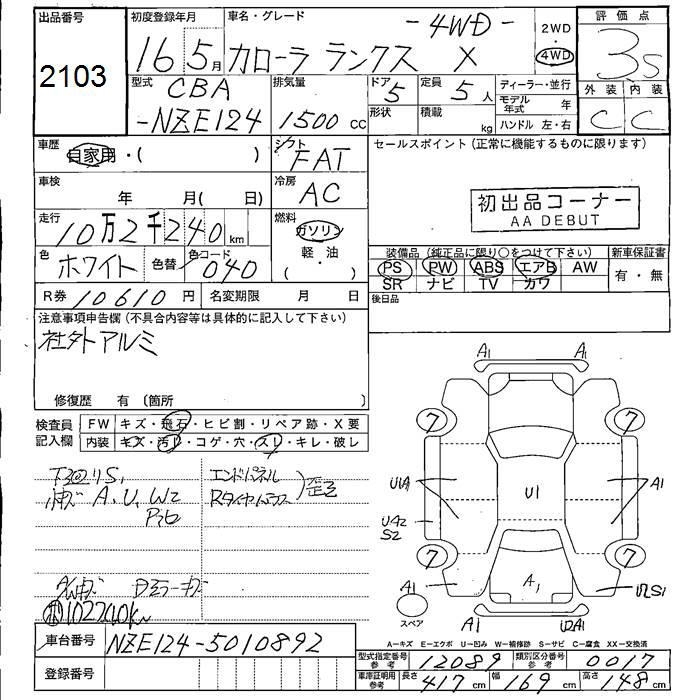 出品番号
2103
初度登録年月
16 5月
車名・グレード
カローラ ランクス X
-4WD-
2WD
・
4WD
評価点
3S
外装 内装
C C
型式
CBA
-NZE124
排気量
1500 CC
ドア
5
形状
定員
5人
積載
kg
ディーラー・並行
モデル年式 年
ハンドル 左・右
車歴
自家用・( )
シフト
FAT
セールスポイント (正常に機能するものに限ります)
初出品コーナー
AA DEBUT
車検
年 月( 日)
冷房
AC
走行
10万2千240km
燃料
ガソリン
軽・油
( ・ )
色
ホワイト
色替
色コード
040
装備品 (純正品に限り○をつけて下さい)
PS PW ABS エアB AW
SR ナビ TV カワ
新車保証書
有・無
後日品
R券 10610円
名変期限 月 日
注意事項申告欄 (不具合内容等は具体的に記入して下さい)
社外アルミ
修復歴 有 〔箇所 〕
検査員
記入欄
FW キズ・飛石・ヒビ割・リペア跡・X要
内装 キズ・汚レ・コゲ・穴・スレ・キレ・破レ
下回りS1
小キズ A、U、W2
エンドパネル
歪
Dミラーキズ
102240km
A1 A1
7 7
U1A U1 A1
U42
S2
7 7
A1 A1 U2S1
スペア
A1 U2A1
A-キズ E-エクボ U-凹み W-補修跡 S-サビ C-腐食 XX-交換済
車台番号
NZE124-5010892
登録番号
型式指定番号
参考
12089
類別区分番号
参考
0017
車庫証明用
参考
長さ 417cm 幅 169cm 高さ 148cm